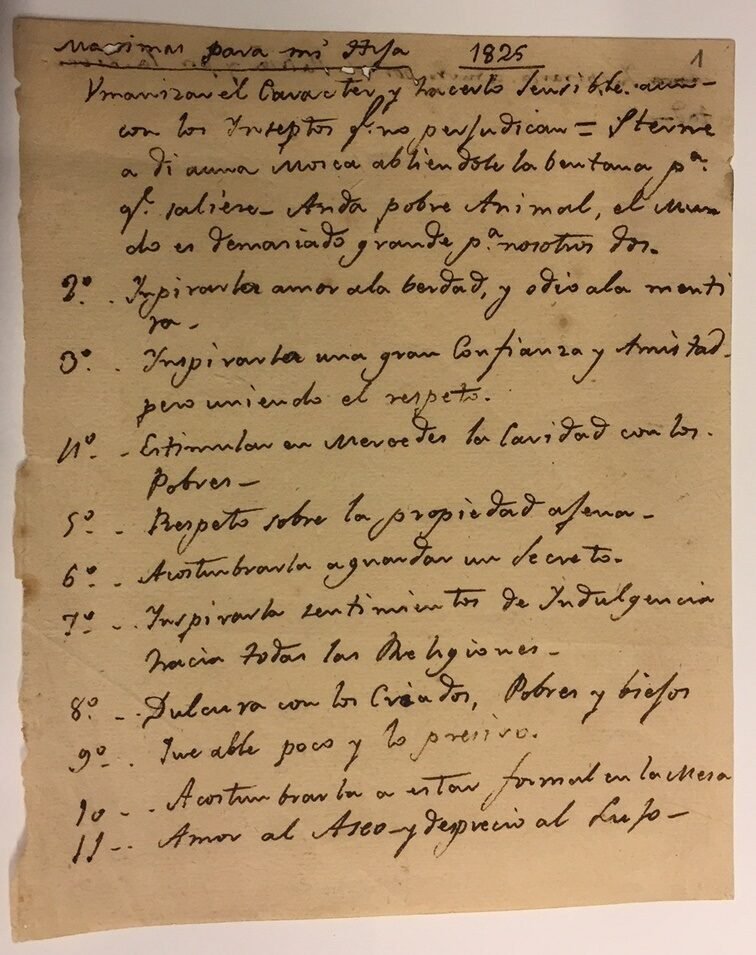 Maximas para mi Hija 1825 1
Vmanizar el Caracter y hacerlo sensible aun
con los Inseptos q.e no perjudican = Sterne
a di auna Mosca abliendole la bentana p.a
q.e saliese - Anda pobre Animal, el Mun
do es demaciado grande p.a nosotros dos.
2º - Inspirarla amor ala berdad, y odio ala menti
ra -
3º - Inspirarla una gran Confianza y Amistad
pero uniendo el respeto.
4º - Estimular en Mercedes la Caridad con los
Pobres -
5º - Respeto sobre la propiedad ajena -
6º - Acostumbrarla aguardar un Secreto.
7º - Inspirarla sentimientos de Indulgencia
hacia todas las Religiones -
8º - Dulcura con los Criados, Pobres y biejos
9º - Que able poco y lo presiso.
10 - Acostumbrarla a estar formal en la Mesa
11 - Amor al Aseo y desprecio al Lujo -